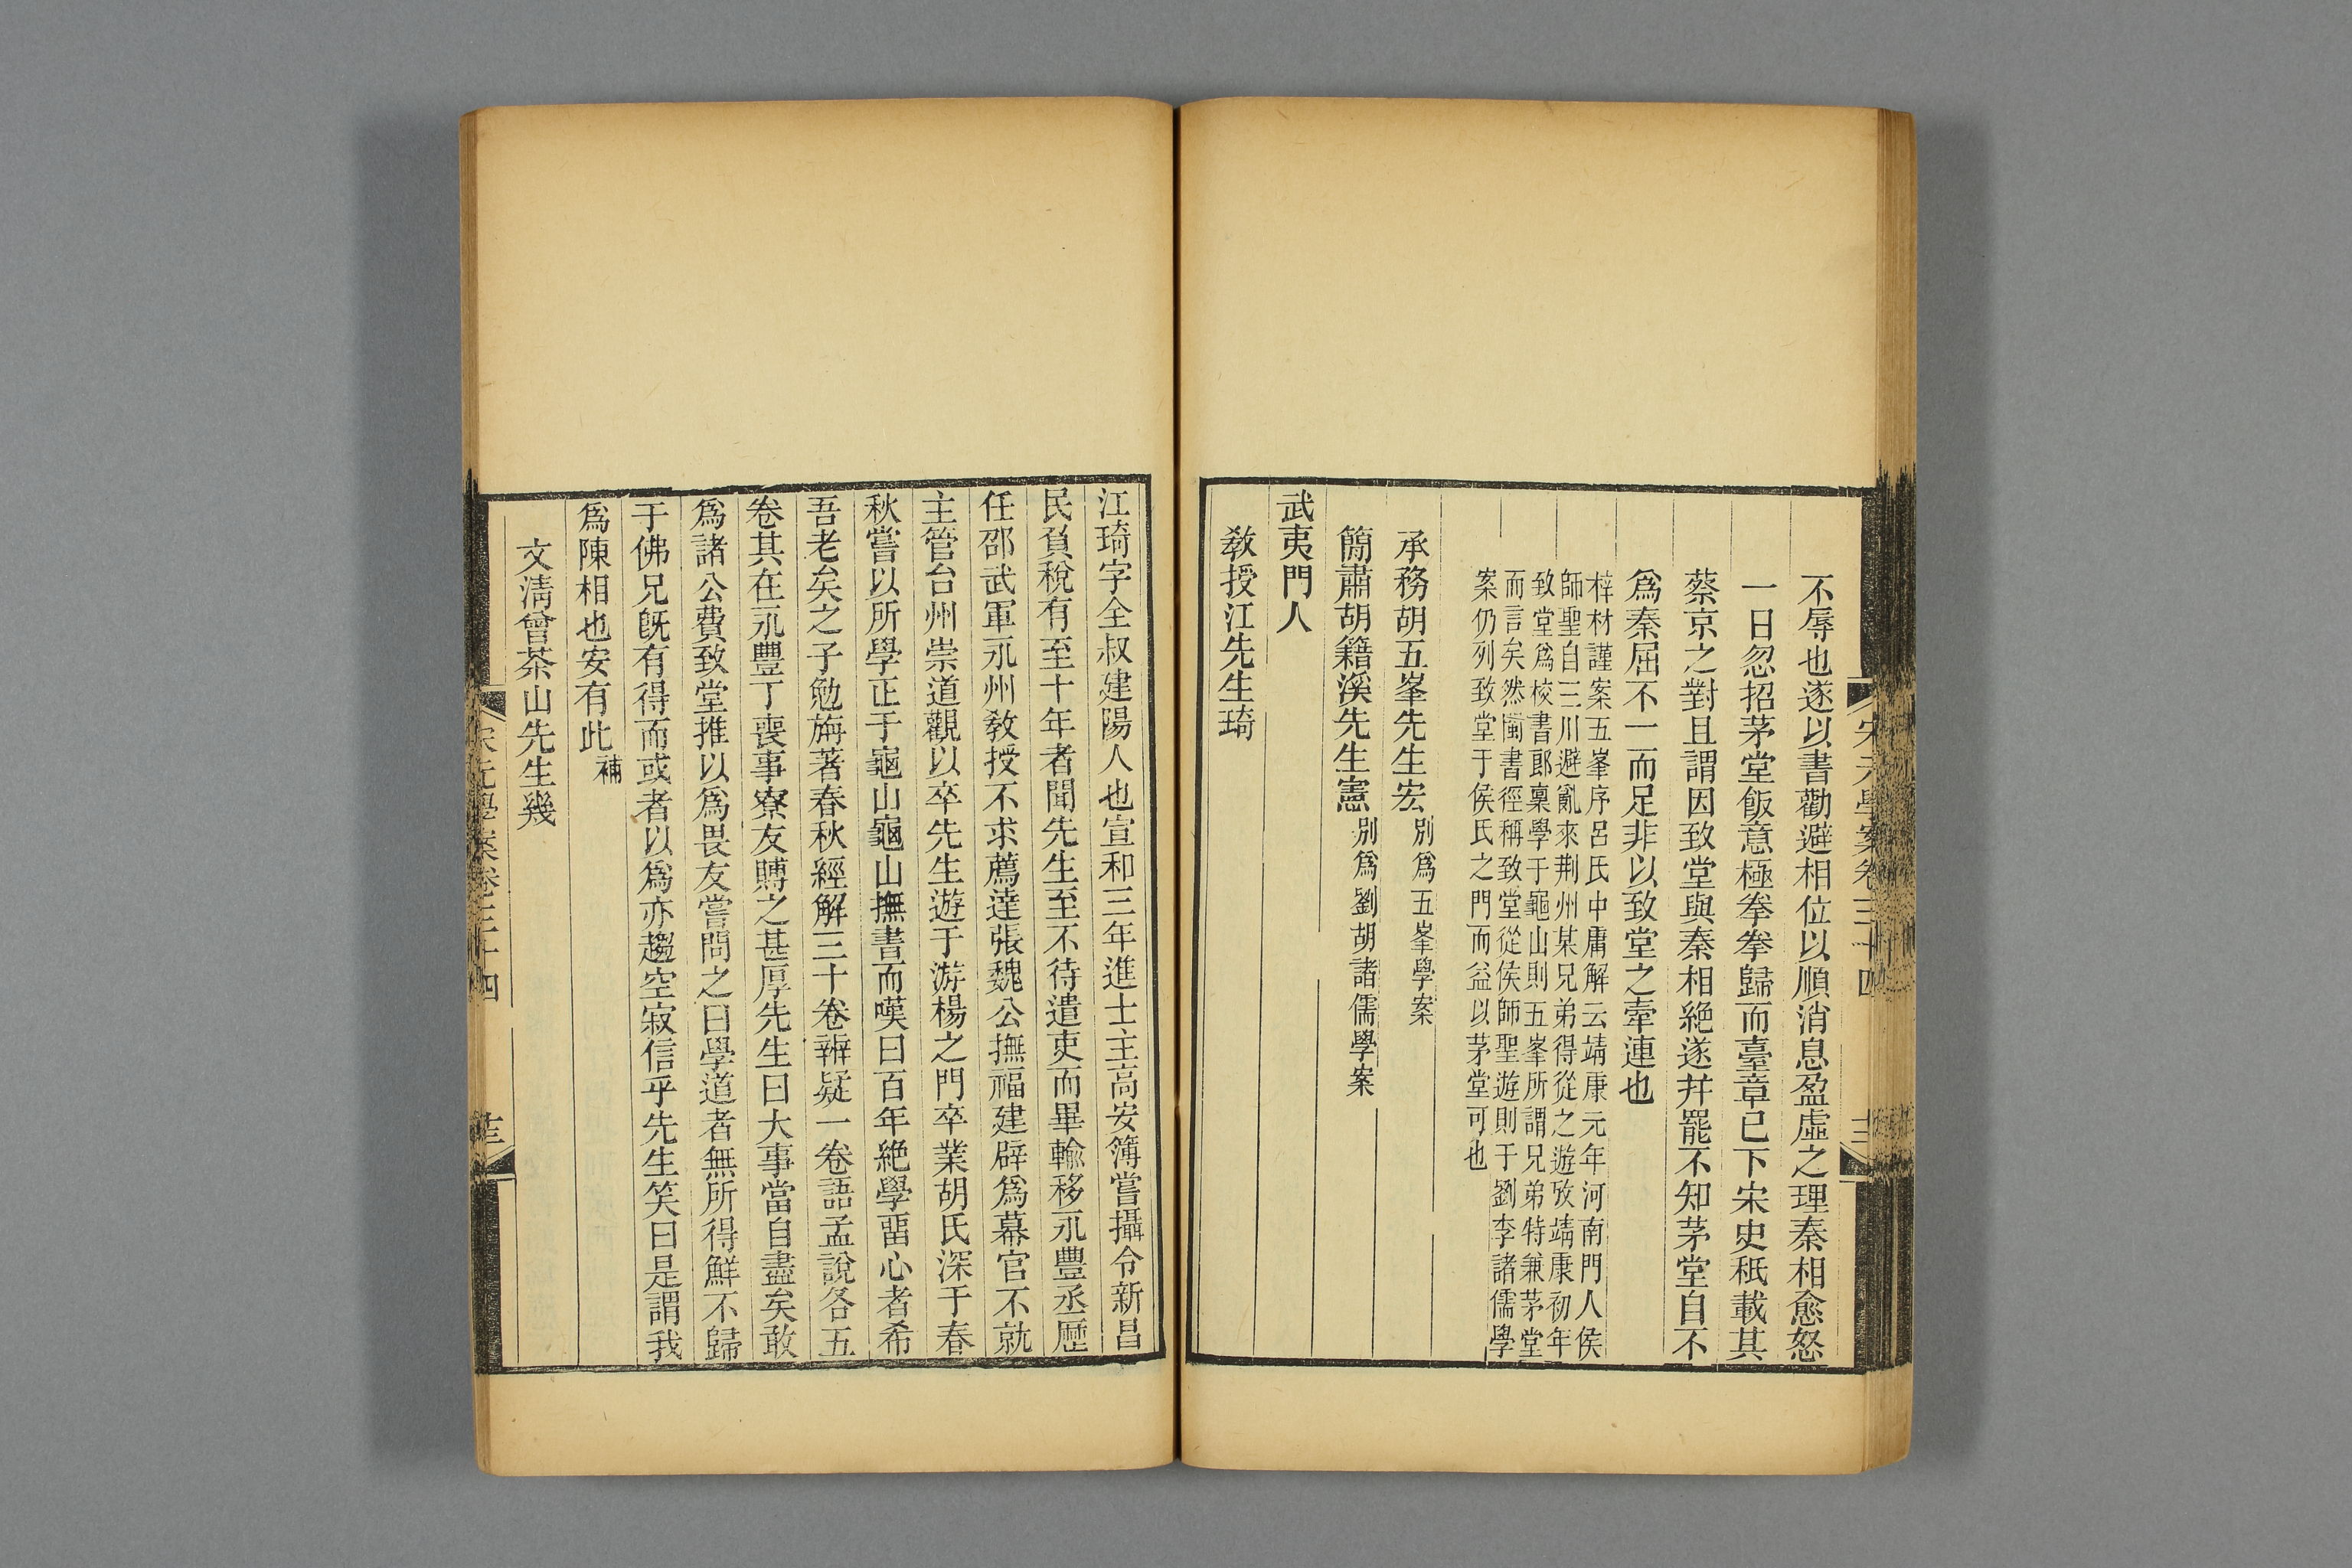 宋元學案卷三十四
不辱也遂以書勸避相位以順消息盈虛之理秦相愈怒
一日忽招茅堂飯意極拳拳歸而臺章已下宋史秖載其
蔡京之對且謂因致堂與秦相絶遂幷罷不知茅堂自不
爲秦屈不一而足非以致堂之牽連也
梓材謹案五峯序呂氏中庸解云靖康元年河南門人侯
師聖自三川避亂來荆州某兄弟得從之遊攷靖康初年
致堂爲校書郎稟學于龜山則五峯所謂兄弟特兼茅堂
而言矣然閩書徑稱致堂從侯師聖遊則于劉李諸儒學
案仍列致堂于侯氏之門而益以茅堂可也
承務胡五峯先生宏別爲五峯學案
簡肅胡籍溪先生憲別爲劉胡諸儒學案
武夷門人
教授江先生琦
江琦字全叔建陽人也宣和三年進士主高安簿嘗攝令新昌
民負稅有至十年者聞先生至不待遣吏而畢輸移永豐丞歷
任邵武軍永州教授不求薦達張魏公撫福建辟爲幕官不就
主管台州崇道觀以卒先生遊于游楊之門卒業胡氏深于春
秋嘗以所學正于龜山龜山撫書而嘆曰百年絶學畱心者希
吾老矣之子勉旃著春秋經解三十卷辨疑一卷語孟說各五
卷其在永豐丁喪事寮友賻之甚厚先生曰大事當自盡矣敢
爲諸公費致堂推以爲畏友嘗問之曰學道者無所得鮮不歸
于佛兄旣有得而或者以爲亦趨空寂信乎先生笑曰是謂我
爲陳相也安有此補
文淸曾茶山先生幾
宋元學案卷三十四